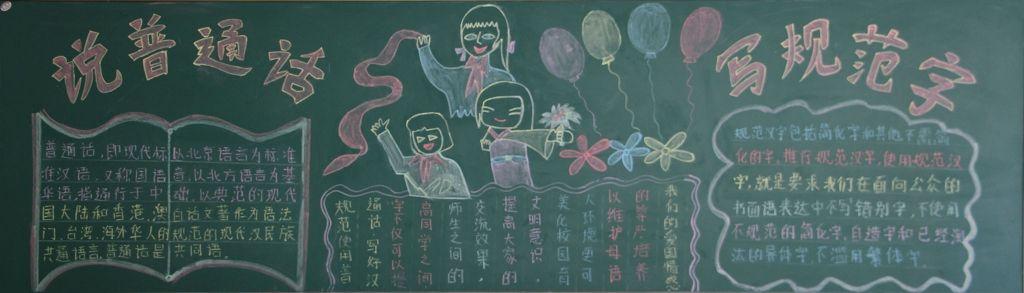 说普通话
写规范字
普通话，即现代标
准汉语，又称国语
华语，指通行于中
国大陆和香港，澳
门，台湾，海外华人的
共通语言，普通话是
以北京语音为标准
音，以北方语言为基
础，以典范的现代
白话文著作为语法
规范的现代汉民族
共同语。
我们的爱国情感
的尊严，培养
以维护母语
人环境更可
美化校园育
文明意识，
提高大家的
交流效果，
师生之间的
高同学之间
字不仅可以提
通话 写好汉
规范使用普
规范汉字包括简化字和其他不需简
化的字，推行规范汉字，使用规范汉
字，就是要求我们在面向公众的
书面语表达中不写错别字，不使用
不规范的简化字，自造字和已经淘
汰的异体字，不滥用繁体字